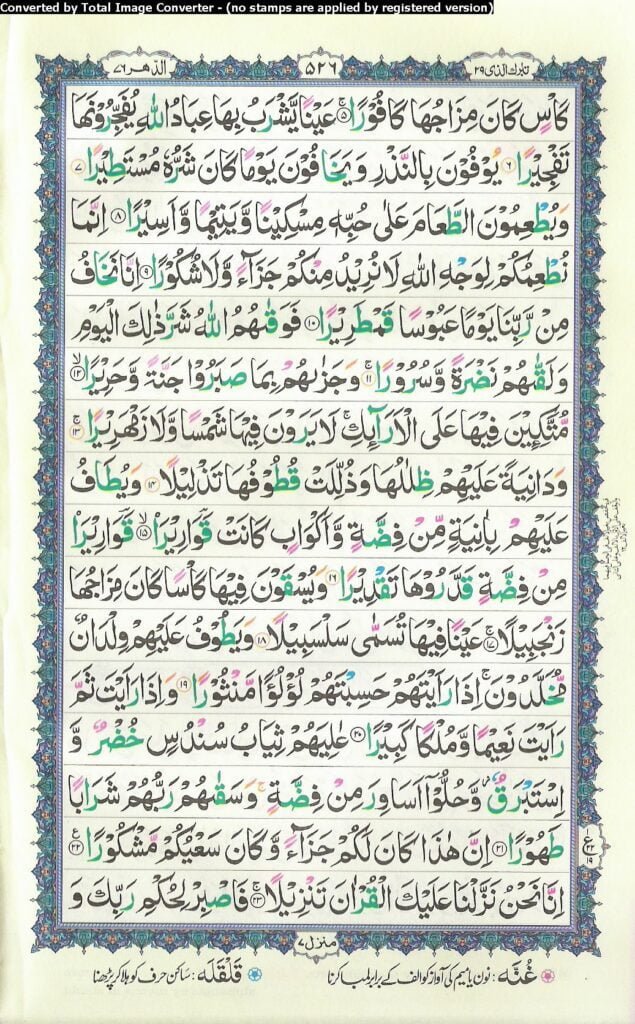 Converted by Total Image Converter - (no stamps are applied by registered version)
تبٰرك الذى ٢٩
٥٢٦
الدھر ٧٦
كَاْسٍ كَانَ مِزَاجُهَا كَافُوْرًا ۚ‏﴿۵﴾ عَيْنًا يَّشْرَبُ بِهَا عِبَادُ اللّٰهِ يُفَجِّرُوْنَهَا
تَفْجِيْرًا ﴿۶﴾ يُوْفُوْنَ بِالنَّذْرِ وَيَخَافُوْنَ يَوْمًا كَانَ شَرُّهٗ مُسْتَطِيْرًا ﴿۷﴾
وَيُطْعِمُوْنَ الطَّعَامَ عَلٰى حُبِّهٖ مِسْكِيْنًا وَّيَتِيْمًا وَّاَسِيْرًا ﴿۸﴾ اِنَّمَا
نُطْعِمُكُمْ لِوَجْهِ اللّٰهِ لَا نُرِيْدُ مِنْكُمْ جَزَآءً وَّلَا شُكُوْرًا ﴿۹﴾ اِنَّا نَخَافُ
مِنْ رَّبِّنَا يَوْمًا عَبُوْسًا قَمْطَرِيْرًا ﴿۱۰﴾ فَوَقٰىهُمُ اللّٰهُ شَرَّ ذٰلِكَ الْيَوْمِ
وَلَقّٰىهُمْ نَضْرَةً وَّسُرُوْرًا ۚ‏﴿۱۱﴾ وَجَزٰىهُمْ بِمَا صَبَرُوْا جَنَّةً وَّحَرِيْرًا ۙ‏﴿۱۲﴾
مُّتَّكِـِٕيْنَ فِيْهَا عَلَى الْاَرَآئِكِ ۚ لَا يَرَوْنَ فِيْهَا شَمْسًا وَّلَا زَمْهَرِيْرًا ۚ‏﴿۱۳﴾
وَدَانِيَةً عَلَيْهِمْ ظِلٰلُهَا وَذُلِّلَتْ قُطُوْفُهَا تَذْلِيْلًا ﴿۱۴﴾ وَيُطَافُ
عَلَيْهِمْ بِاٰنِيَةٍ مِّنْ فِضَّةٍ وَّاَكْوَابٍ كَانَتْ قَوَارِيْرَا۟ ۙ‏﴿۱۵﴾ قَوَارِيْرَا۟
مِنْ فِضَّةٍ قَدَّرُوْهَا تَقْدِيْرًا ﴿۱۶﴾ وَيُسْقَوْنَ فِيْهَا كَاْسًا كَانَ مِزَاجُهَا
زَنْجَبِيْلًا ۚ‏﴿۱۷﴾ عَيْنًا فِيْهَا تُسَمّٰى سَلْسَبِيْلًا ﴿۱۸﴾ وَيَطُوْفُ عَلَيْهِمْ وِلْدَانٌ
مُّخَلَّدُوْنَ ۚ اِذَا رَاَيْتَهُمْ حَسِبْتَهُمْ لُؤْلُؤًا مَّنْثُوْرًا ﴿۱۹﴾ وَاِذَا رَاَيْتَ ثَمَّ
رَاَيْتَ نَعِيْمًا وَّمُلْكًا كَبِيْرًا ﴿۲۰﴾ عٰلِيَهُمْ ثِيَابُ سُنْدُسٍ خُضْرٌ وَّ
اِسْتَبْرَقٌ ۫ وَّحُلُّوْۤا اَسَاوِرَ مِنْ فِضَّةٍ ۚ وَسَقٰىهُمْ رَبُّهُمْ شَرَابًا
طَهُوْرًا ﴿۲۱﴾ اِنَّ هٰذَا كَانَ لَكُمْ جَزَآءً وَّكَانَ سَعْيُكُمْ مَّشْكُوْرًا ﴿۲۲﴾
ع ٢٢ ١٩
اِنَّا نَحْنُ نَزَّلْنَا عَلَيْكَ الْقُرْاٰنَ تَنْزِيْلًا ۚ‏﴿۲۳﴾ فَاصْبِرْ لِحُكْمِ رَبِّكَ وَ
منزل ٧
غُنَّه: نون یا میم کی آواز کو الف کے برابر لمبا کرنا
قَلْقَلَه: ساکن حرف کو ہلا کر پڑھنا